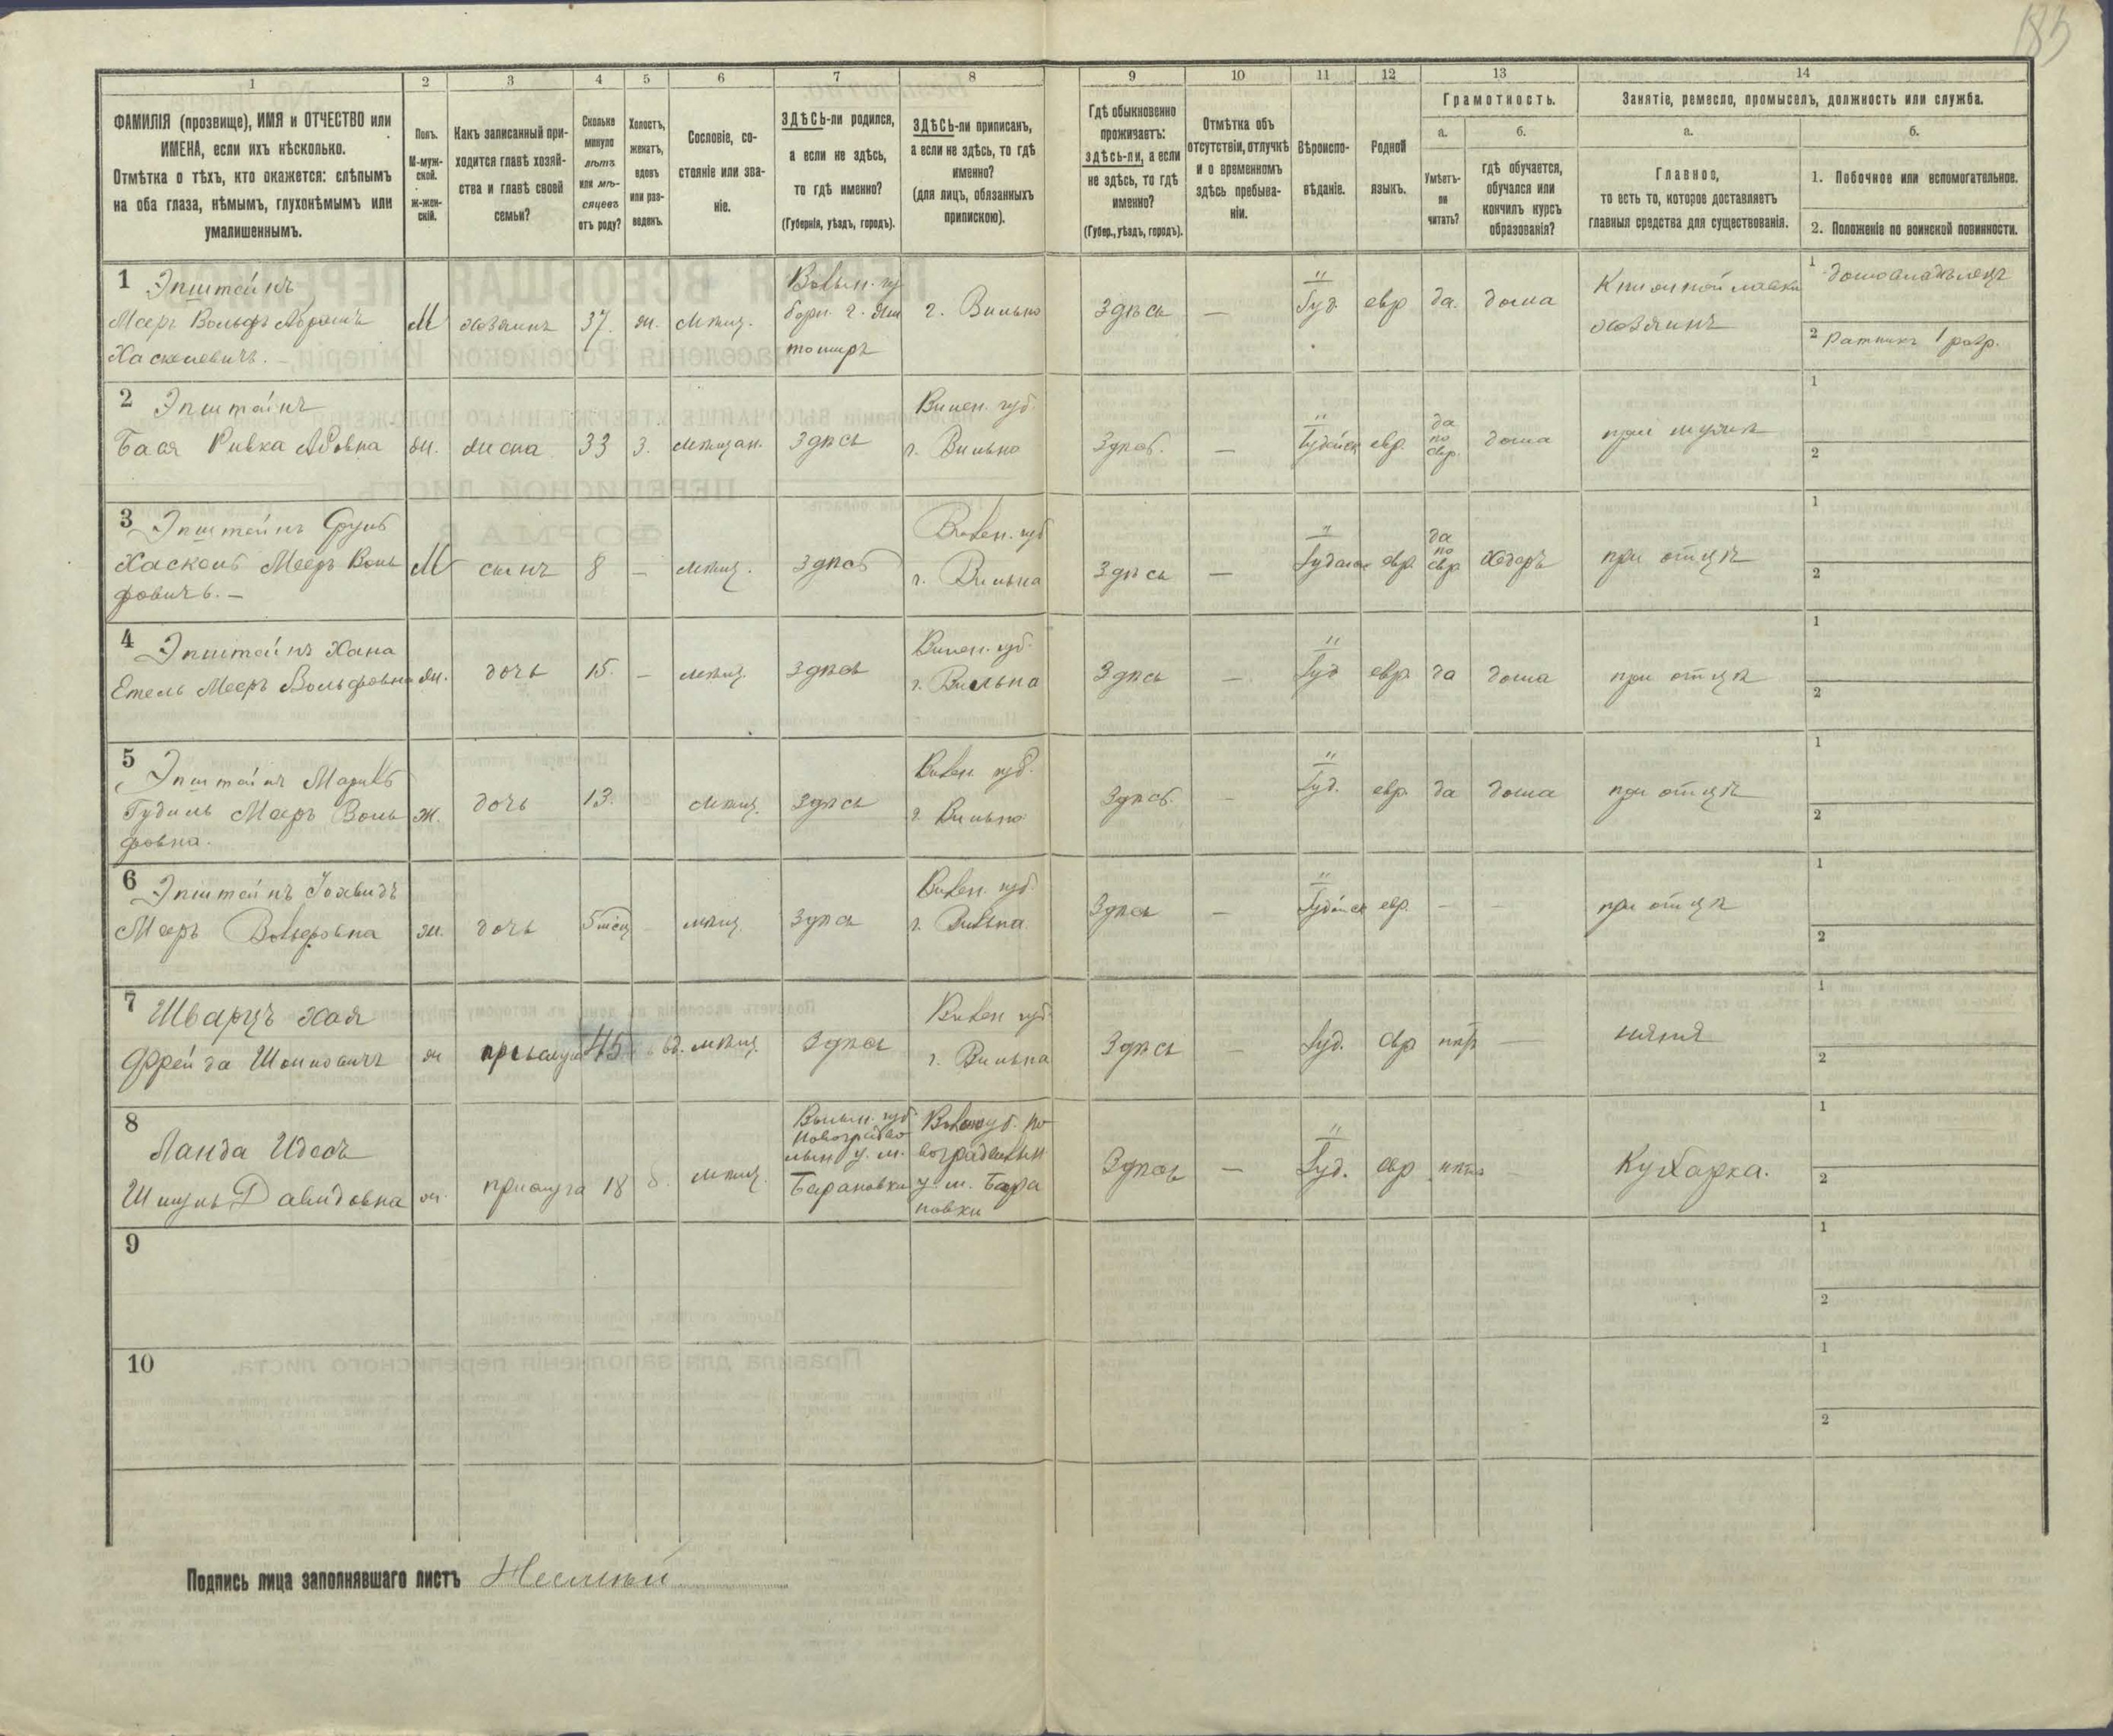 185
1
2
3
4
5
6
7
8
9
10
11
12
13
14
ФАМИЛІЯ (прозвище), ИМЯ и ОТЧЕСТВО или
ИМЕНА, если ихъ нѣсколько.
Отмѣтка о тѣхъ, кто окажется: слѣпымъ
на оба глаза, нѣмымъ, глухонѣмымъ или
умалишеннымъ.
Полъ.
М-муж-
ской.
ж-жен-
скій.
Какъ записанный при-
ходится главѣ хозяй-
ства и главѣ своей
семьи?
Сколько
минуло
лѣтъ
или мѣ-
сяцевъ
отъ роду?
Холостъ,
женатъ,
вдовъ
или раз-
веденъ.
Сословіе, со-
стояніе или зва-
ніе.
ЗДѢСЬ-ли родился,
а если не здѣсь,
то гдѣ именно?
(Губернія, уѣздъ, городъ).
ЗДѢСЬ-ли приписанъ,
а если не здѣсь, то гдѣ
именно?
(для лицъ, обязанныхъ
припискою).
Гдѣ обыкновенно
проживаетъ:
здѣсь-ли, а если
не здѣсь, то гдѣ
именно?
(Губер., уѣздъ, городъ).
Отмѣтка объ
отсутствіи, отлучкѣ
и о временномъ
здѣсь пребыва-
ніи.
Вѣроиспо-
вѣданіе.
Родной
языкъ.
Грамотность.
а.
Умѣетъ-
ли
читать?
б.
гдѣ обучается,
обучался или
кончилъ курсъ
образованія?
Занятіе, ремесло, промыселъ, должность или служба.
а.
Главное,
то есть то, которое доставляетъ
главныя средства для существованія.
б.
1. Побочное или вспомогательное.
2. Положеніе по воинской повинности.
1 Эпштейнъ
Мееръ Вольфъ Абрамъ
Хаскелевичъ.
М
хозяинъ
37.
ж.
мѣщ.
Волын. гу
берн. г. Жи
томиръ
г. Вильно
Здѣсь
—
Іуд.
евр
да.
дома
Книжной лавки
хозяинъ
1 домовладѣлецъ
2 Ратникъ 1 разр.
2 Эпштейнъ
Бася Ривка
ж.
жена
33
з.
мѣщан.
Здѣсь
Вилен. губ.
г. Вильно
Здѣсь.
—
Іудейск
евр.
да
по
евр.
дома
при мужѣ
1
2
3 Эпштейнъ
Хаскель Мееръ Воль
фовичъ. —
М
сынъ
8
—
мѣщ.
Здѣсь
Вилен. губ
г. Вильна
Здѣсь
—
евр.
да
по
евр
Хедеръ
при отцѣ
1
2
4 Эпштейнъ Хана
Етель Мееръ Вольфовна
ж.
дочь
15.
—
мѣщ.
Здѣсь
Вилен. губ.
г. Вильна
Здѣсь
—
Іуд
евр.
да
дома
при отцѣ
1
2
5 Эпштейнъ
Гудиль Мееръ Воль
фовна.
ж.
дочь
13.
мѣщ.
Здѣсь
Вилен. губ.
г. Вильно
Здѣсь.
Іуд.
евр.
да
дома
при отцѣ
1
2
6 Эпштейнъ Іохвидъ
Мееръ Вольфовна
ж.
дочь
5 мѣсяц
мѣщ.
Здѣсь
Вилен. губ.
г. Вильна
Здѣсь
—
Іудейск
евр.
—
—
при отцѣ
1
2
7 Шварцъ Хая
Фрейда
ж
прислуга
45
в.
мѣщ.
Здѣсь
Вилен губ.
г. Вильна
Здѣсь
—
Іуд.
евр
нѣтъ
—
няня
1
2
8 Ланда Идесъ
Давидовна
ж.
прислуга
18
мѣщ.
Волын. губ
Новоградво
лын у. м.
Барановки
Волын губ. Но
воградволын
у. м. Бара
новки
Здѣсь
—
Іуд.
евр
нѣтъ
Кухарка.
1
2
9
1
2
10
1
2
Подпись лица заполнявшаго листъ